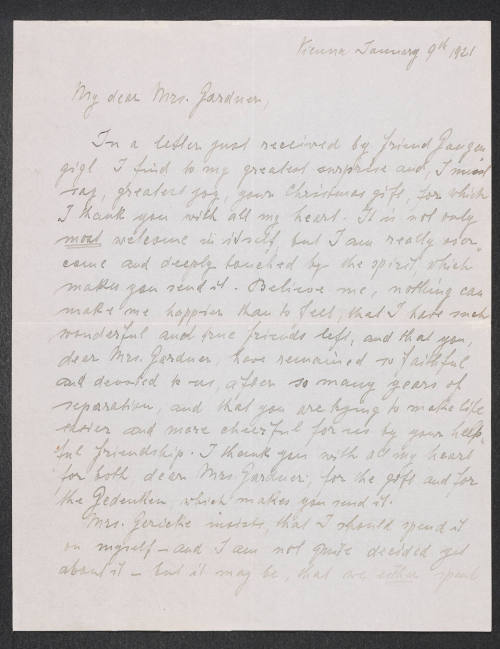 Vienna January 9th 1921
My dear Mrs. Gardner,
In a letter just received by friend
gigl I find to my greatest surprise and, I must
say, greatest joy, your Christmas gift, for which
I thank you with all my heart. It is not only
most welcome in itself, but I am really over-
come and deeply touched by the spirit, which
makes you send it. Believe me, nothing can
make me happier than to feel, that I have such
wonderful and true friends left, and that you,
dear Mrs. Gardner, have remained so faithful
and devoted to us, after so many years of
separation, and that you are trying to make life
easier and more cheerful for us by your help-
ful friendship. I thank you with all my heart
for both, dear Mrs. Gardner, for the gift and for
the Gedenken, which makes you send it.
Mrs. Gericke insists, that I should spend it
on myself – and I am not quite decided yet
about it – but it may be, that we either spend